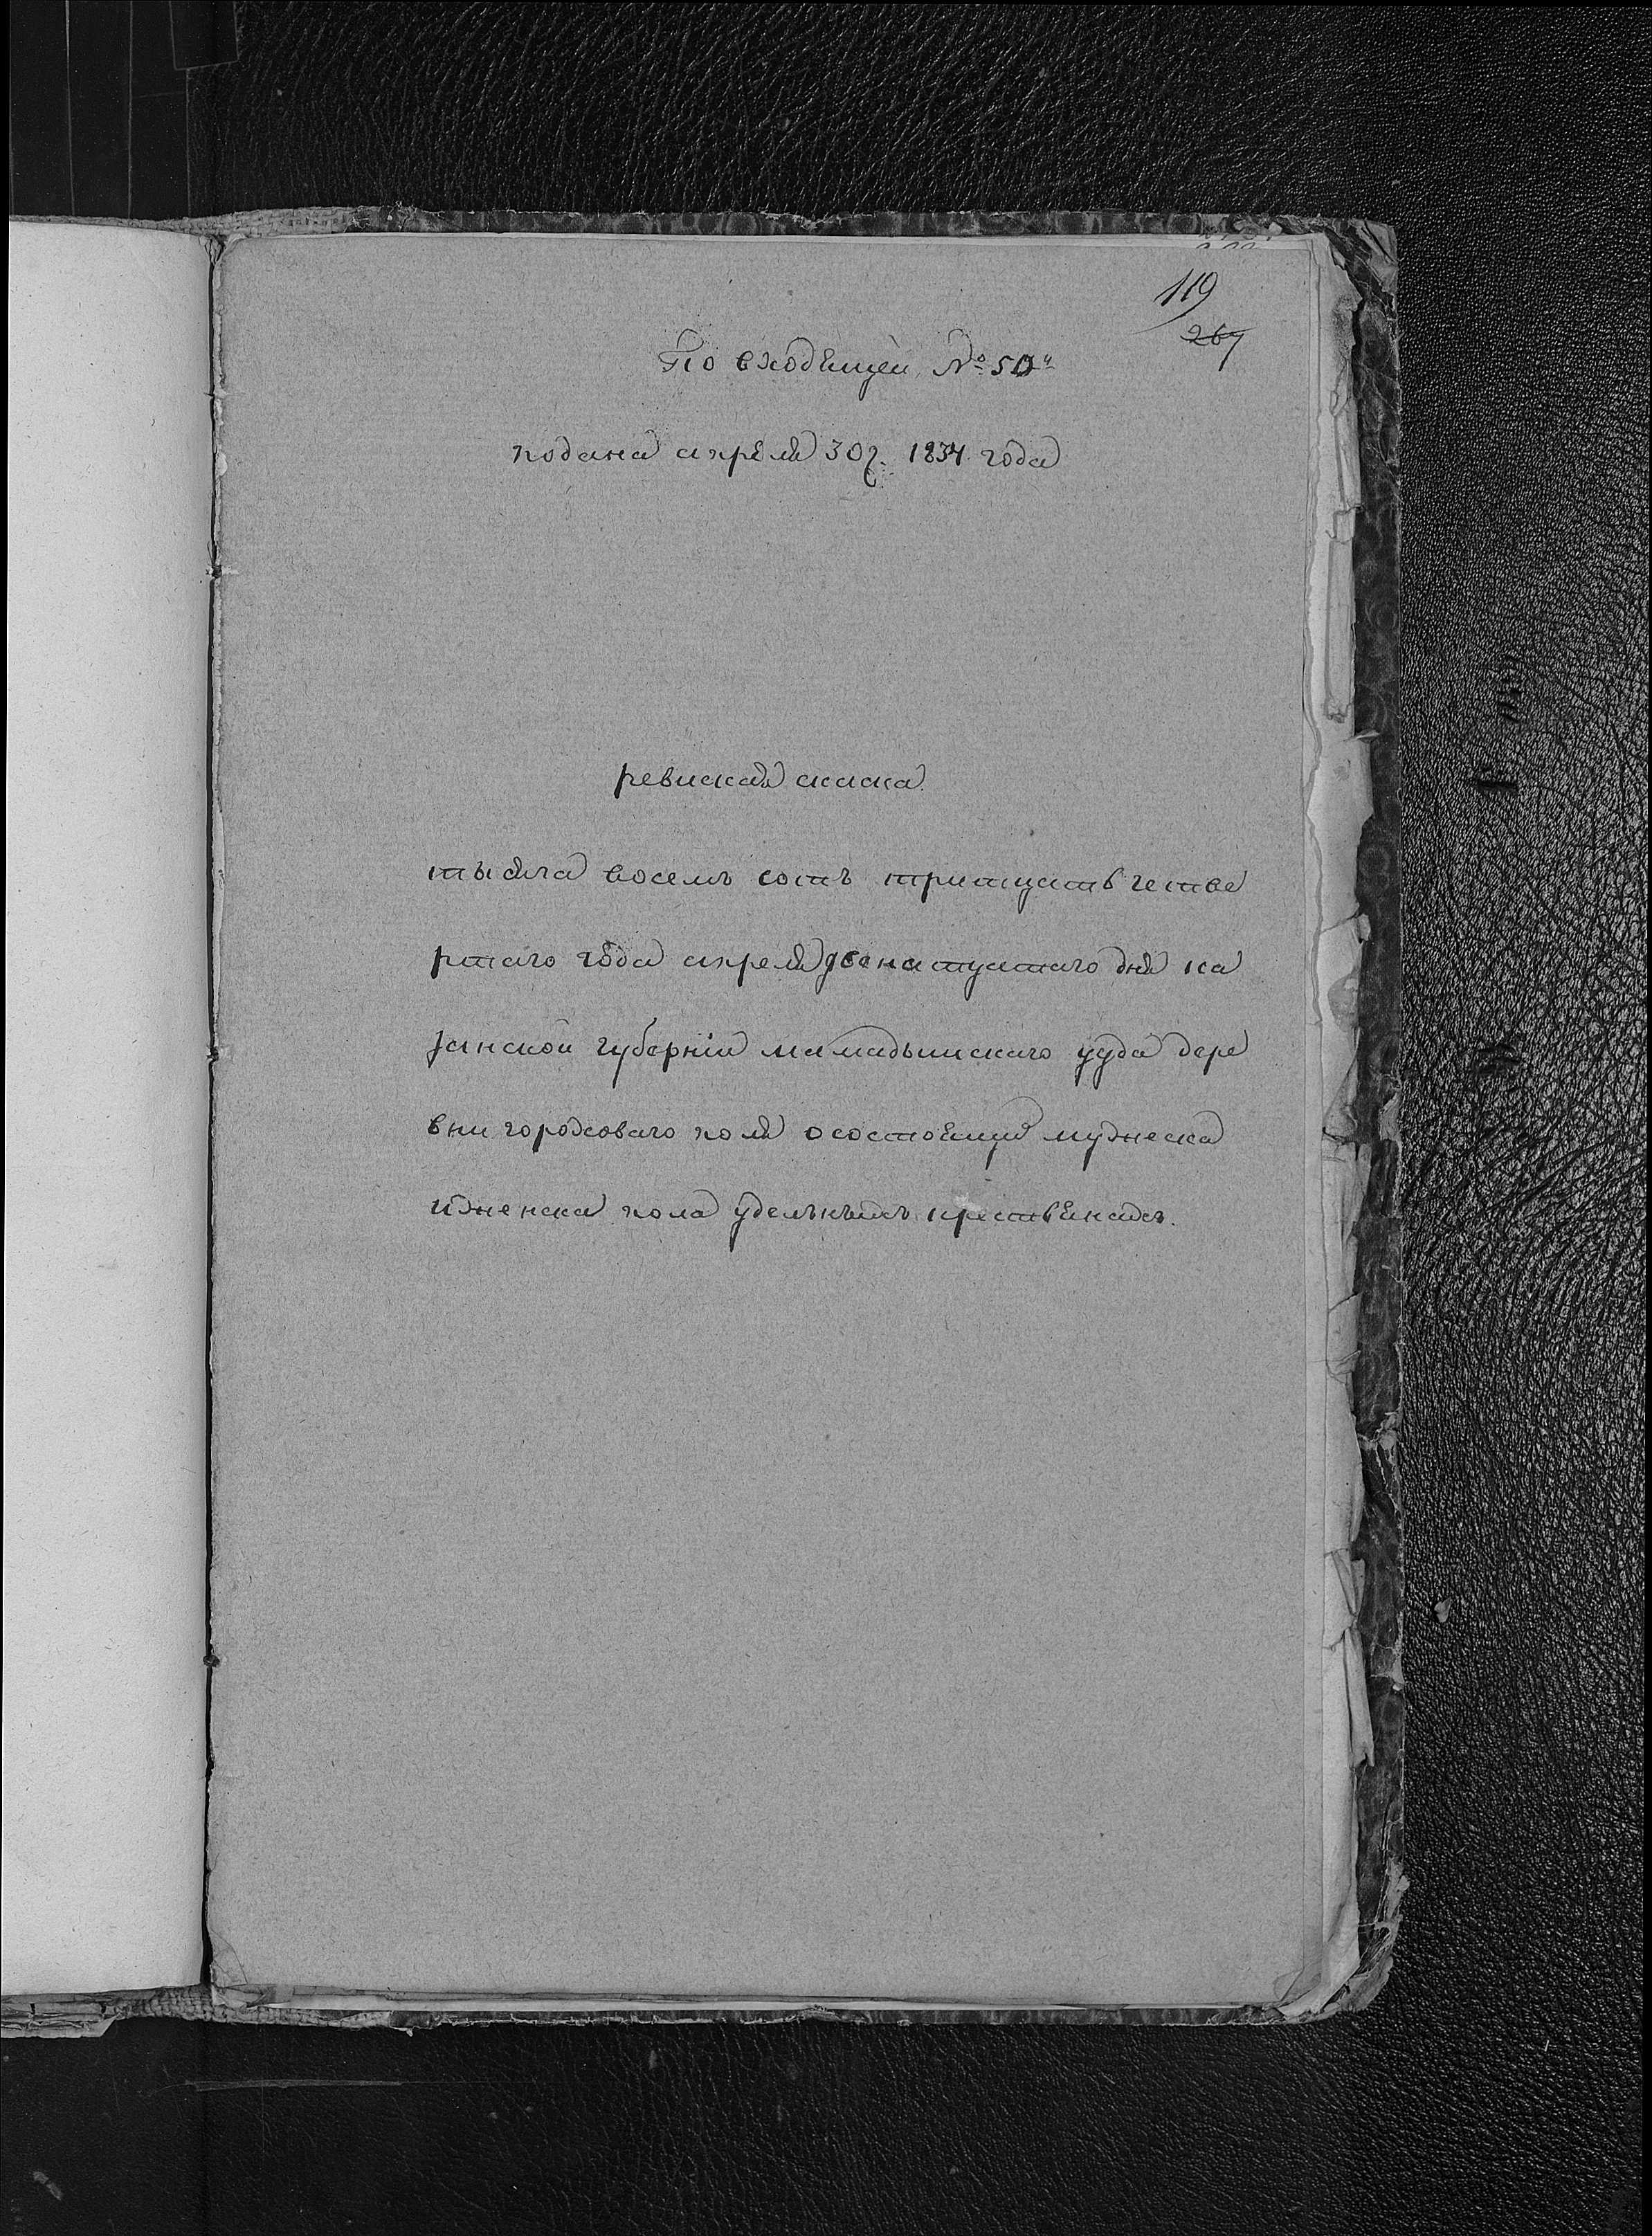 119
267
По входящей № 50
подана апреля 30г. 1834 года
ревиская скаска
тысяча восемъ сотъ тритцать четве
ртаго года апреля двенатцатаго дня ка
занской губернiи мамадышскаго уезда дере
вни городсоваго поля осостоящихъ мужеска
иженска пола удельныхъ крествянахъ.